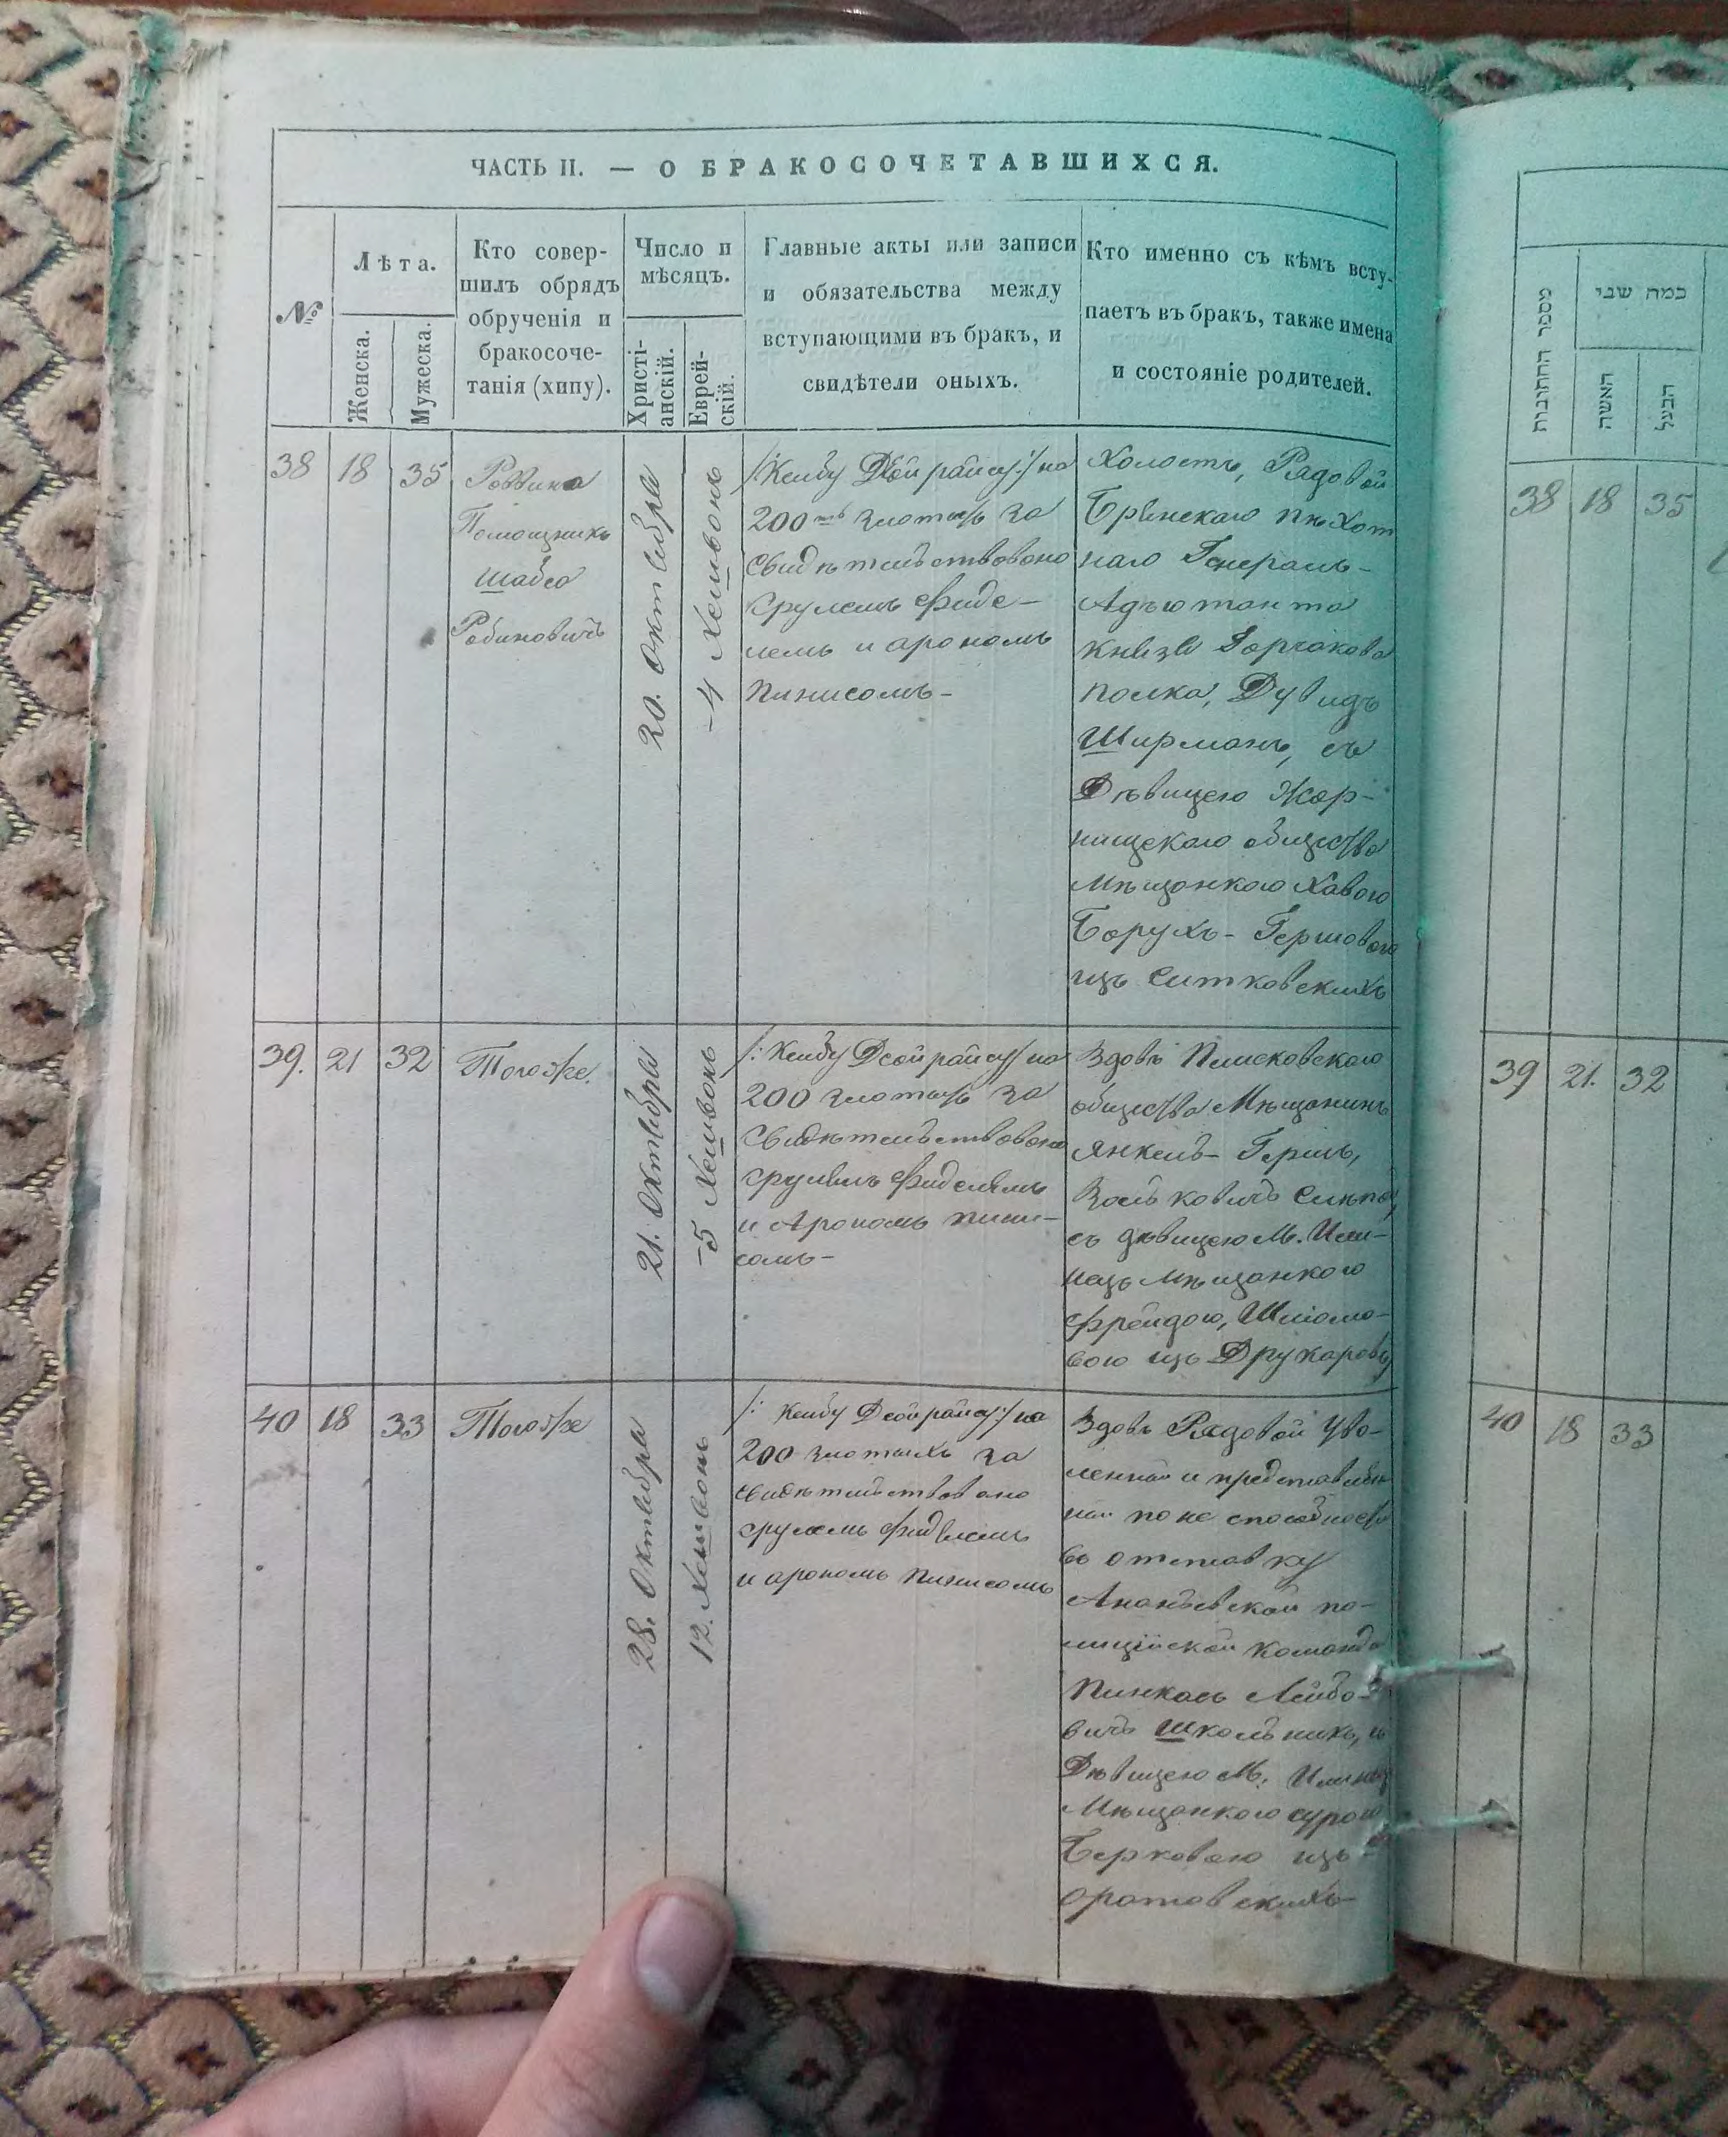 ЧАСТЬ II. — О БРАКОСОЧЕТАВШИХСЯ.
№
Лѣта.
Женска.
Мужеска.
Кто совер-
шилъ обрядъ
обрученія и
бракосоче-
танія (хипу).
Число и
мѣсяцъ.
Христі-
анскій.
Еврей-
скій.
Главные акты или записи
и обязательства между
вступающими въ бракъ, и
свидѣтели оныхъ.
Кто именно съ кѣмъ всту-
паетъ въ бракъ, также имена
и состояніе родителей.
38
18
35
Раввина
Помощникъ
Шабса
Рабиновичъ
20. Октября
-4 Хешвонъ
на
200 злотыхъ за
свидѣтельствовано
Срулемъ Фиде-
лемъ и Арономъ
Пинисомъ-
Холостъ, Рядовой
Брянскаго пѣхот
наго Генералъ-
Адъютанта
Князя Горчакова
полка, Дувидъ
Ширманъ, съ
Дѣвицею Жор-
нищскаго общества
Мѣщанкою Хавою
Борухъ-Гершовою
изъ Ситковскихъ
39.
21
32
Тогоже.
21. Октября
-5 Хешвонъ
на
200 злотыхъ за
свидѣтельствовано
Срулемъ Фиделемъ
и Арономъ Пини-
сомъ-
Вдовъ Плисковскаго
общества Мѣщанинъ
Янкель-Гершъ,
съ дѣвицею М. Или-
нецъ мѣщанкою
Фрейдою, Шліомо-
вою изъ Друкаровъ
40
18
33
Тогоже
28. Октября
12. Хешвонъ
на
200 злотыхъ за
свидѣтельствовано
Срулемъ Фиделемъ
и Арономъ Пинисомъ
Вдовъ Рядовой Уво-
ленной и представлен
ной по не способности
въ отставку
Ананьевской по-
лиційской команды
Пинкасъ Лейбо-
вичъ Школьникъ, съ
Дѣвицею М. Илинецъ
Мѣщанкою Сурою
Берковою изъ
Оратовскихъ-
מספר החתונות
כמה שני
האשה
הבעל
38
18
35
39
21.
32
40
18
33